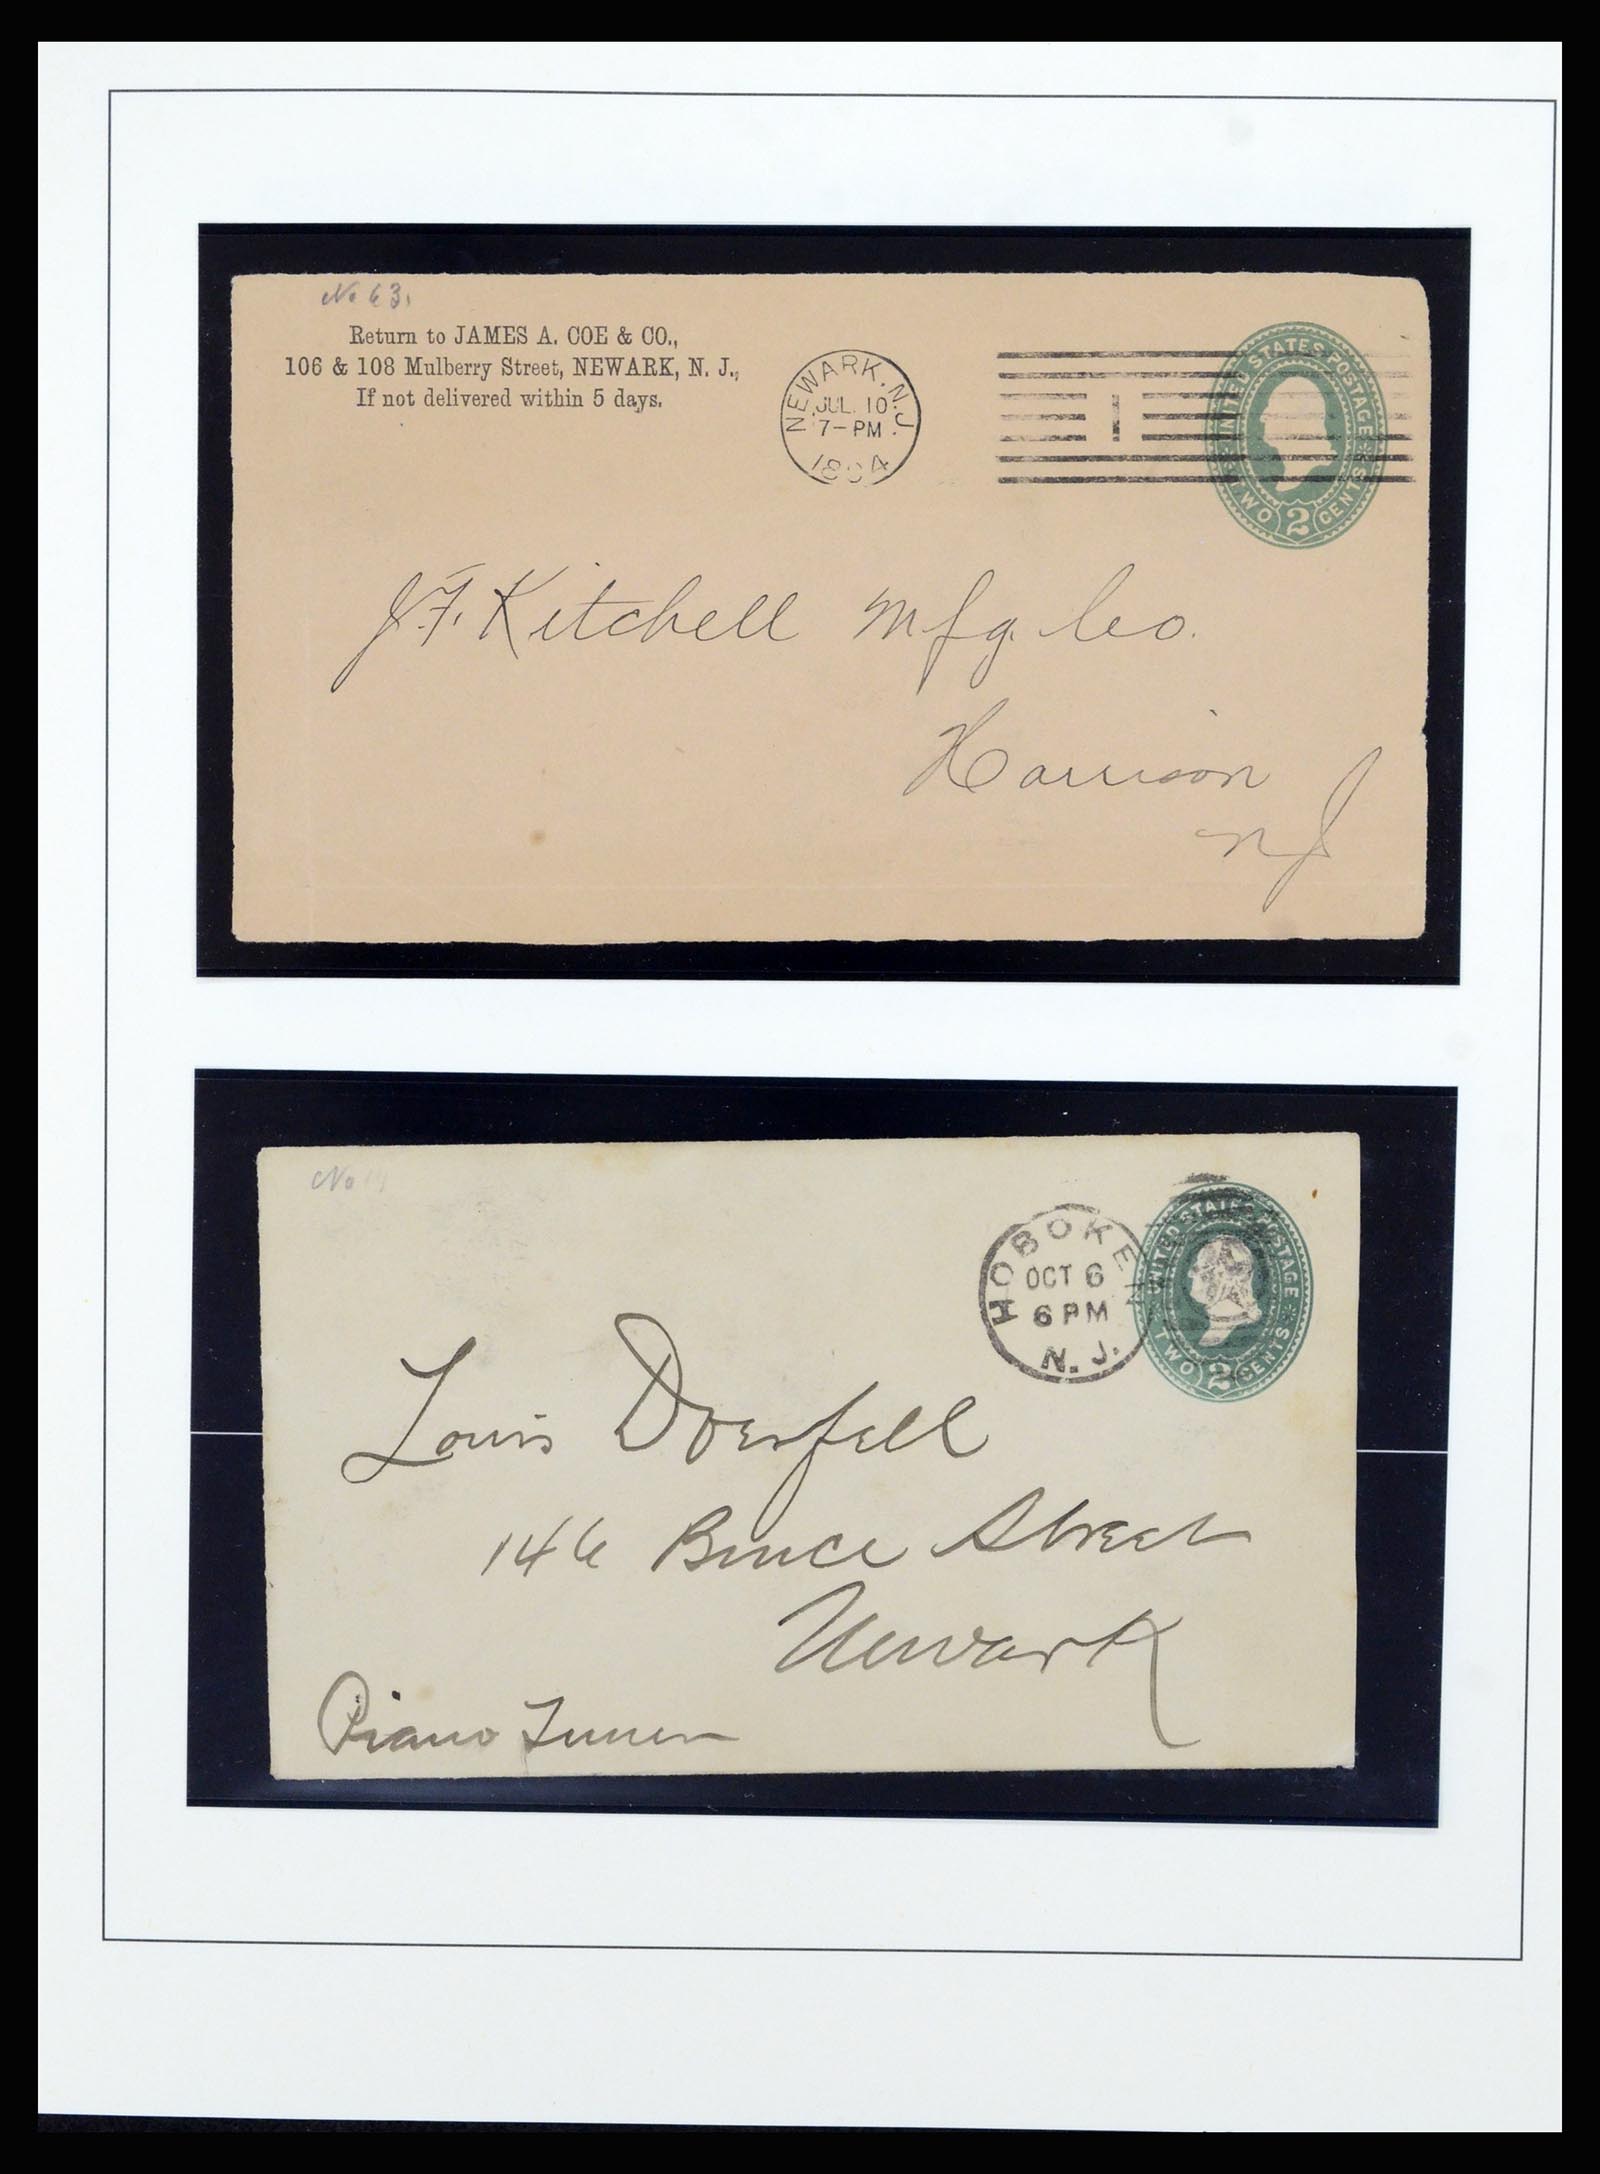 No 63.
Return to JAMES A. COE & CO.,
106 & 108 Mulberry Street, NEWARK, N. J.,
If not delivered within 5 days.
NEWARK, N.J.
JUL. 10
7-PM
1894
1
UNITED STATES POSTAGE
TWO 2 CENTS
J. F. Kitchell Mfg. Co.
Harrison
NJ
No
HOBOKEN
OCT 6
6 PM
N. J.
UNITED STATES POSTAGE
TWO 2 CENTS
Louis Doerfell
146 Bruce Street
Newark
Piano Tuner